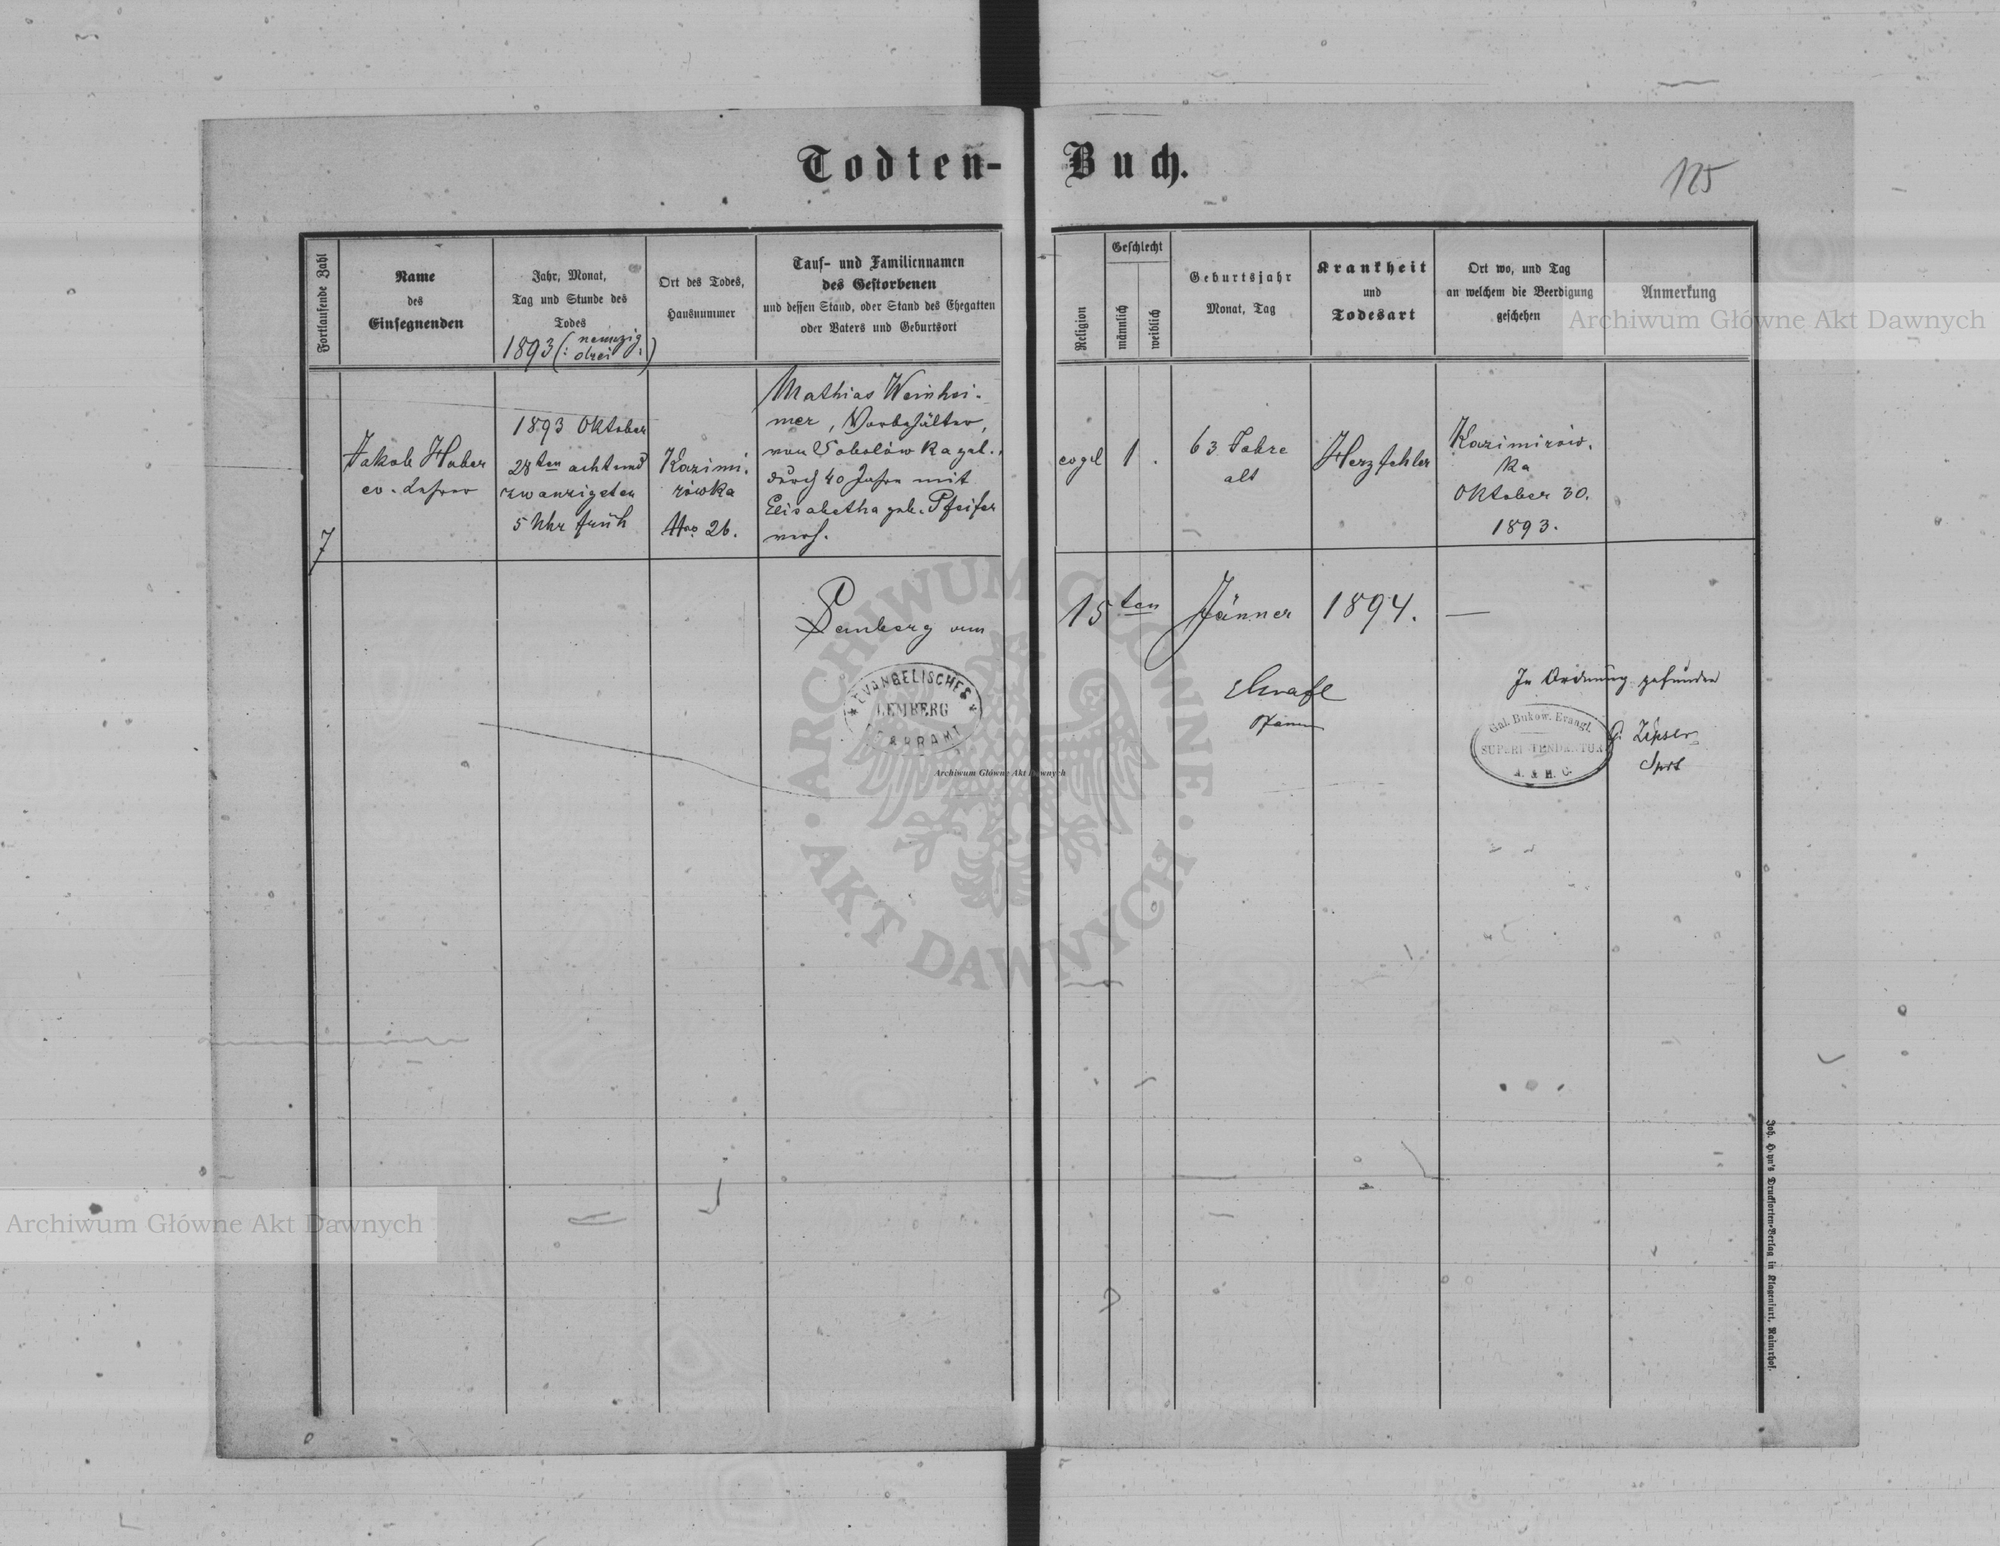 Todten-Buch.
125
Fortlaufende Zahl
Name
des
Einsegnenden
Jahr, Monat,
Tag und Stunde des
Todes
1893 (: neunzig
drei :)
Ort des Todes,
Hausnummer
Tauf- und Familiennamen
des Gestorbenen
und dessen Stand, oder Stand des Ehegatten
oder Vaters und Geburtsort
Religion
Geschlecht
männlich
weiblich
Geburtsjahr
Monat, Tag
Krankheit
und
Todesart
Ort wo, und Tag
an welchem die Beerdigung
geschehen
Anmerkung
7
Jakob Huber
ev. Lehrer
1893 Oktober
28ten achtund
zwanzigsten
5 Uhr früh
Kazimi-
rówka
Nro 26.
Mathias Weinhei-
mer, Vorbehälter,
von
durch 40 Jahre mit
Elisabetha geb. Pfeifer
verh.
evgel
1.
63 Jahre
alt
Herzfehler
Kazimirów-
ka
Oktober 30.
1893.
Lemberg am
15ten Jänner 1894. —
Pfarrer
In Ordnung gefunden
Zipser
Spdt
EVANGELISCHES
LEMBERG
PFARRAMT
Gal. Bukow. Evangl.
SUPERINTENDENTUR
A. & H. C.
Joh. Heyn's Drucksorten-Verlag in Klagenfurt, Rainerhof.
Archiwum Główne Akt Dawnych
Archiwum Główne Akt Dawnych
Archiwum Główne Akt Dawnych
ARCHIWUM GŁÓWNE
AKT DAWNYCH